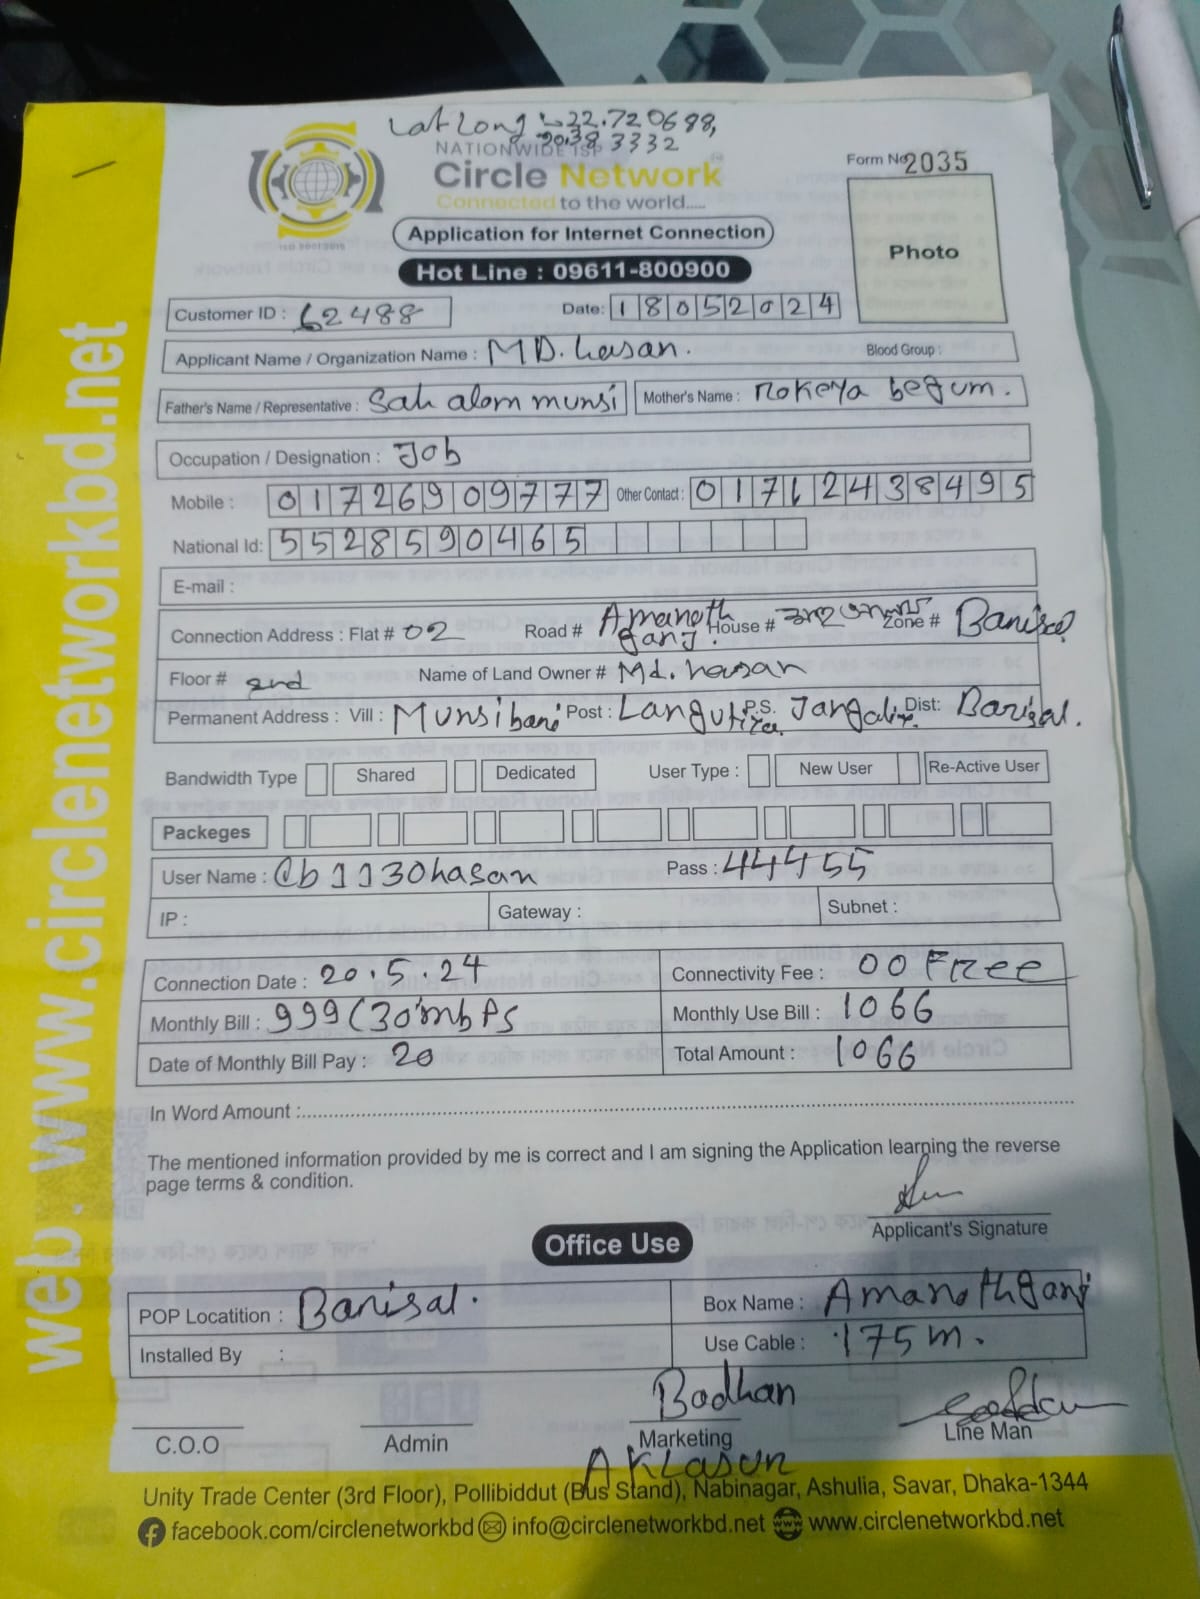 Lat Long 22.720688,
90.383332
NATIONWIDE ISP
Circle Network
Connected to the world.....
Form No 2035
Application for Internet Connection
Hot Line : 09611-800900
Photo
Customer ID : 62488
Date: 18052024
Applicant Name / Organization Name : MD. hasan.
Blood Group :
Father's Name / Representative : Sah alom munsi
Mother's Name : rokeya begum.
Occupation / Designation : Job
Mobile : 01726909777
Other Contact : 01712438495
National Id: 5528590465
E-mail :
Connection Address : Flat # 02 Road # Amanoth ganj. House # Zone # Barisal
Floor # 2nd Name of Land Owner # Md. hasan
Permanent Address : Vill : Munsibari Post : Langutiya P.S. Dist: Barisal.
Bandwidth Type Shared Dedicated User Type : New User Re-Active User
Packeges
User Name : @b1130hasan Pass : 44455
IP : Gateway : Subnet :
Connection Date : 20.5.24 Connectivity Fee : 00 Free
Monthly Bill : 999 (30 mbps Monthly Use Bill : 1066
Date of Monthly Bill Pay : 20 Total Amount : 1066
In Word Amount :
The mentioned information provided by me is correct and I am signing the Application learning the reverse
page terms & condition.
Applicant's Signature
Office Use
POP Locatition : Barisal. Box Name : Amanothganj
Installed By : Use Cable : 175m.
Badhan
C.O.O Admin Marketing Line Man
Unity Trade Center (3rd Floor), Pollibiddut (Bus Stand), Nabinagar, Ashulia, Savar, Dhaka-1344
facebook.com/circlenetworkbd info@circlenetworkbd.net www.circlenetworkbd.net
web : www.circlenetworkbd.net